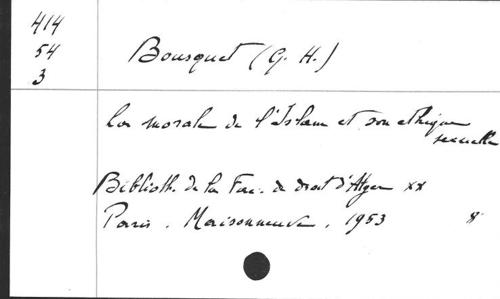 414
54
3
Bousquet (G. H.)
La morale de l'Islam et son éthique
sexuelle
Biblioth. de la Fac. de droit d'Alger XX
Paris. Maisonneuve. 1953 8°